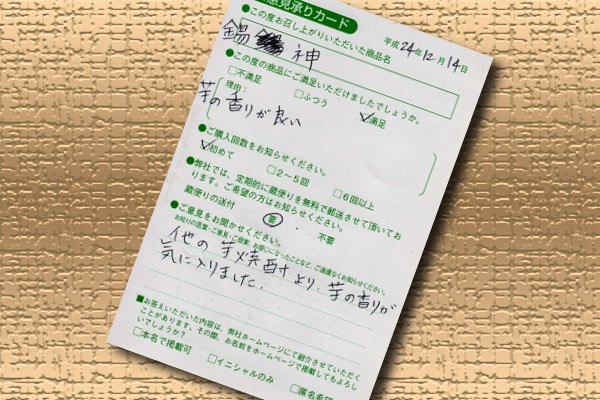 意見承りカード
平成24年12月14日
●この度お召し上がりいただいた商品名
錫 神
●この度の商品にご満足いただけましたでしょうか。
□不満足 □ふつう ☑満足
理由:
芋の香りが良い
●ご購入回数をお知らせください。
☑初めて □2～5回 □6回以上
●弊社では、定期的に蔵便りを無料で郵送させて頂いてお
ります。ご希望の方はお知らせください。
蔵便りの送付 要 ・ 不要
●ご意見をお聞かせください。
お叱りの言葉・ご意見・ご提案、お感じになったことなど、ご遠慮なくお知らせください。
他の芋焼酎より、芋の香りが
気に入りました.
■お答えいただいた内容は、弊社ホームページにて紹介させていただく
ことがあります。その際、お名前をホームページで掲載してもよろし
いでしょうか?
□本名で掲載可 □イニシャルのみ □匿名希望